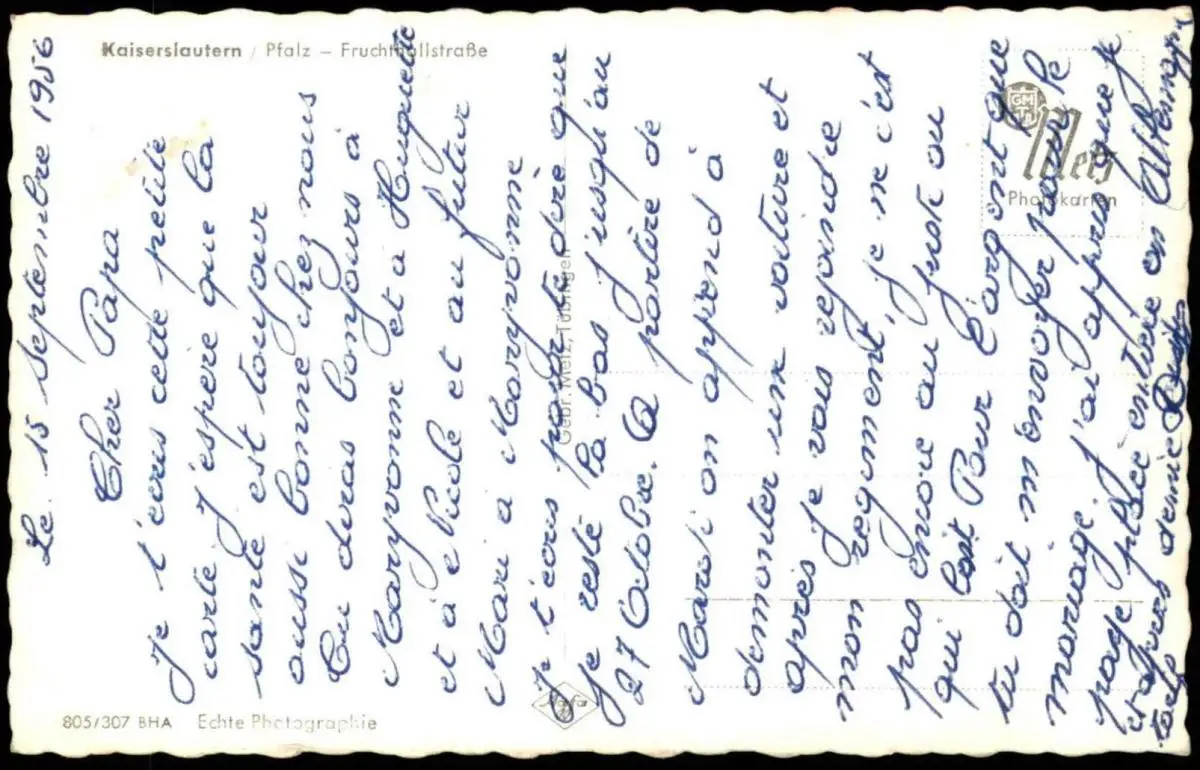 Kaiserslautern / Pfalz – Fruchthallstraße
Le 15 Septembre 1956
Cher Papa
Je t'écris cette petite
carte j'espère que la
santé est toujour
aussi bonne chez nous
Tu diras bonjours à
Maryvonne et à Huguette
et à Nicole et au futur
Mari a Maryvonne
Je t'écris pour te dire que
je reste la bas jusqu'au
27 Octobre. A partire de
Mardi on apprend à
demonter une voiture et
après je vais rejoindre
mon regiment, je ne c'est
pas encore au juste ou
qui Pour l'argent que
tu doit m'envoyer pour le
mariage. J'ai appris que je
passe entière en Allemagne
et apres
Metz
Photokarten
GM
Gebr. Metz, Tübingen
805/307 BHA Echte Photographie